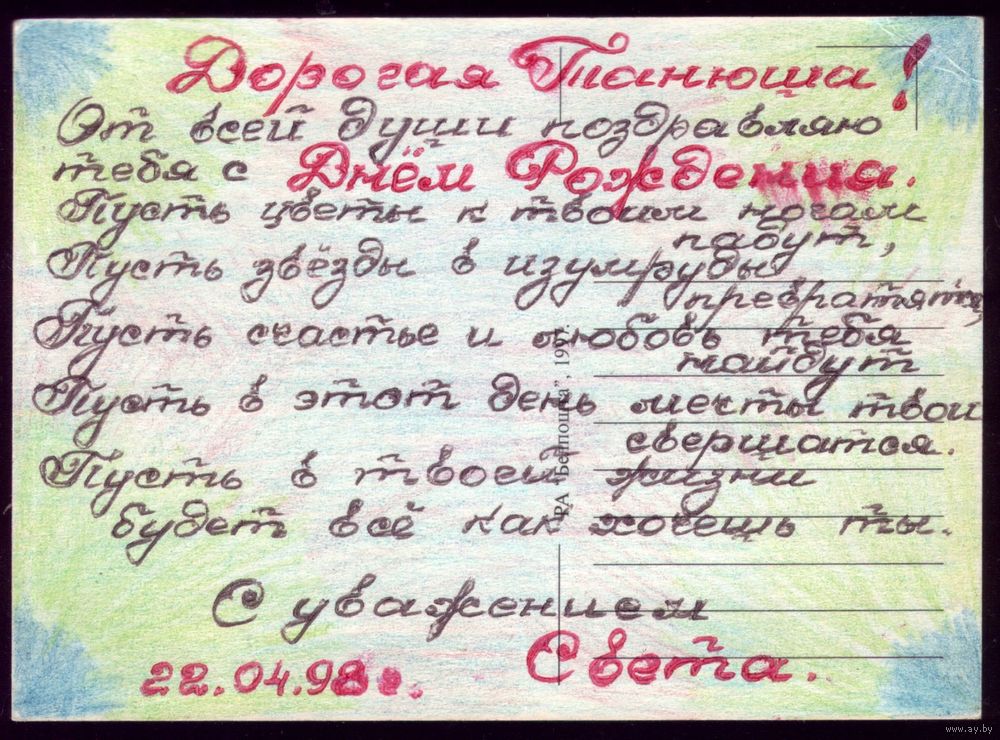 Дорогая Танюша!
От всей души поздравляю
тебя с Днём Рождения.
Пусть цветы к твоим ногам
падут,
Пусть звёзды в изумруды
превратятся,
Пусть счастье и любовь тебя
найдут
Пусть в этот день мечты твои
свершатся.
Пусть в твоей жизни
будет всё как хочешь ты.
С уважением
Света.
22.04.98г.
www.ay.by